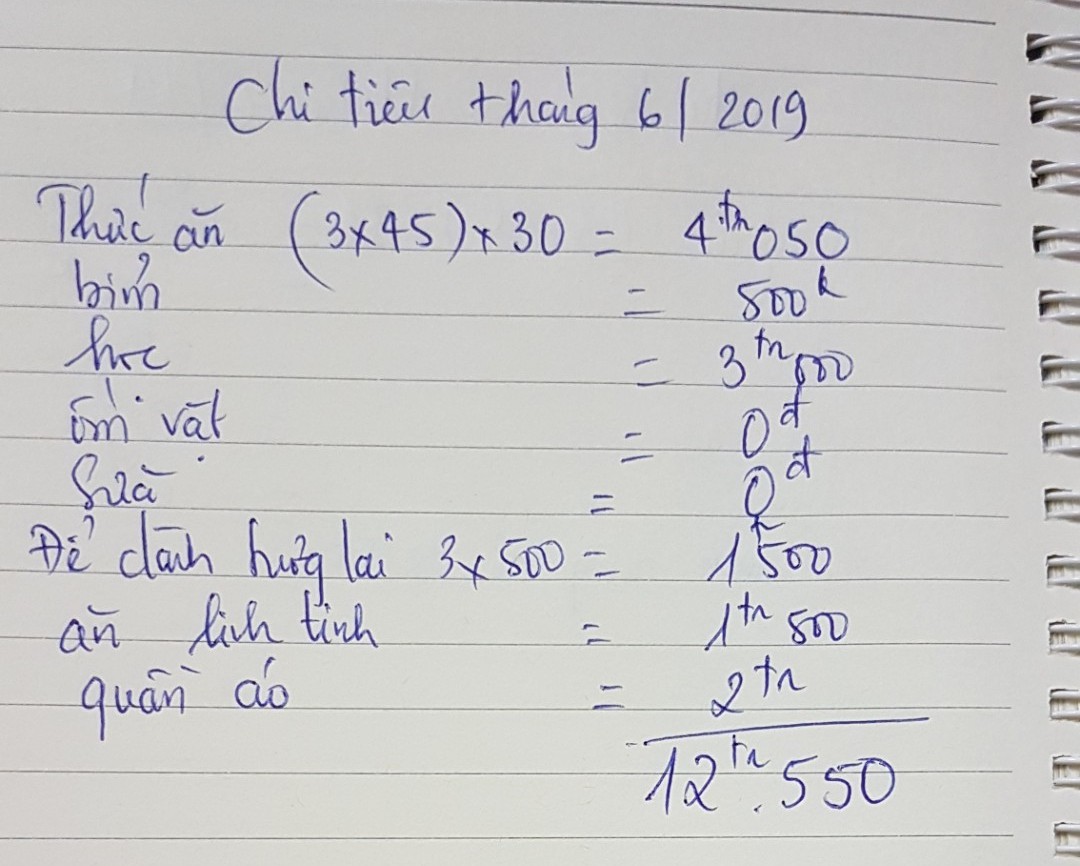 Chi tiêu tháng 6/2019
Thức ăn (3x45)x30 = 4tr050
bỉm = 500k
học = 3tr000
ốm vặt = 0đ
Sữa = 0đ
Để dành tương lai 3x500 = 1tr500
ăn linh tinh = 1tr500
quần áo = 2tr
12tr.550